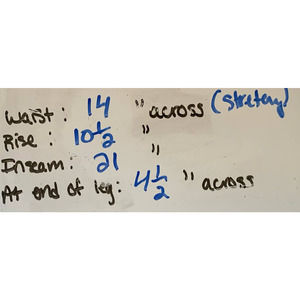 Waist: 14 " across (stretchy)
Rise: 10 1/2 "
Inseam: 21 "
At end of leg: 4 1/2 " across